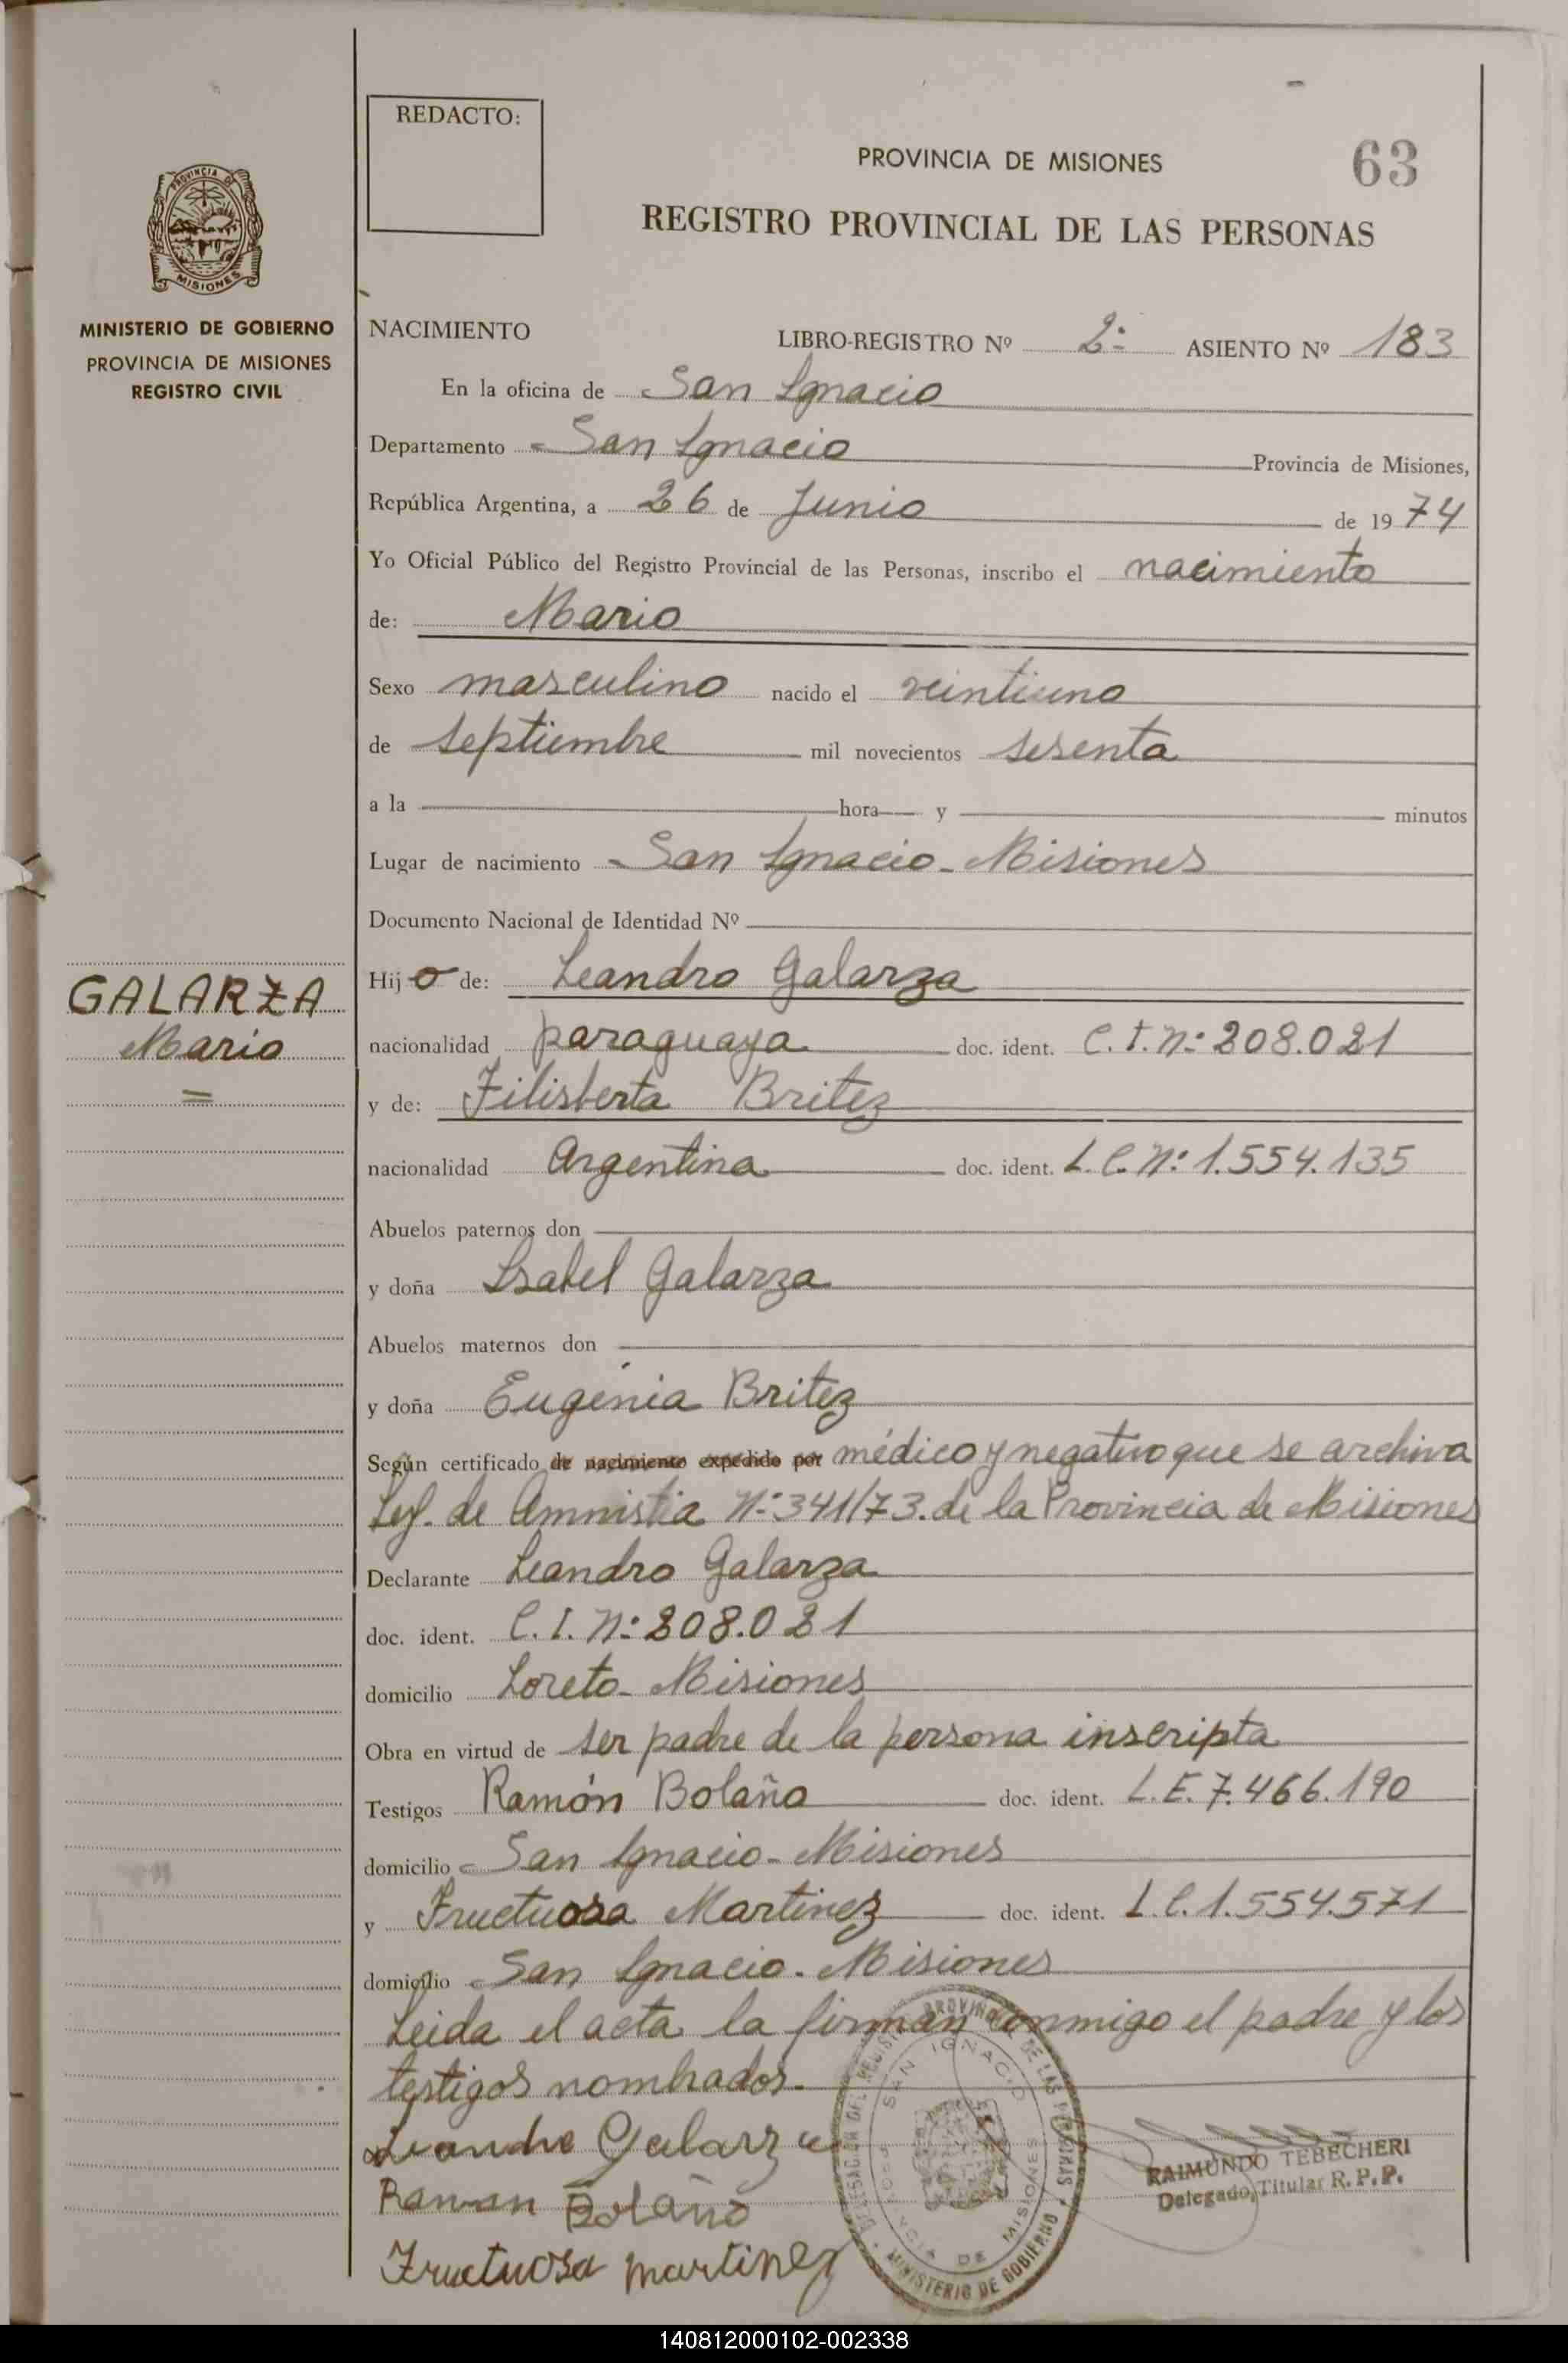 REDACTO:
PROVINCIA DE MISIONES
63
REGISTRO PROVINCIAL DE LAS PERSONAS
PROVINCIA DE
MISIONES
MINISTERIO DE GOBIERNO
PROVINCIA DE MISIONES
REGISTRO CIVIL
NACIMIENTO LIBRO-REGISTRO Nº 2º ASIENTO Nº 183
En la oficina de San Ignacio
Departamento San Ignacio Provincia de Misiones,
República Argentina, a 26 de Junio de 19 74
Yo Oficial Público del Registro Provincial de las Personas, inscribo el nacimiento
de: Mario
Sexo masculino nacido el veintiuno
de septiembre mil novecientos sesenta
a la hora y minutos
Lugar de nacimiento San Ignacio - Misiones
Documento Nacional de Identidad Nº
GALARZA
Mario
Hijo de: Leandro Galarza
nacionalidad paraguaya doc. ident. C.I. Nº 208.021
y de: Filisberta Britez
nacionalidad Argentina doc. ident. L.C. Nº 1.554.135
Abuelos paternos don
y doña Isabel Galarza
Abuelos maternos don
y doña Eugenia Britez
Según certificado de nacimiento expedido por médico y negativo que se archiva
Ley. de Amnistia Nº 341/73. de la Provincia de Misiones
Declarante Leandro Galarza
doc. ident. C.I. Nº 208.021
domicilio Loreto - Misiones
Obra en virtud de ser padre de la persona inscripta
Testigos Ramón Bolaño doc. ident. L.E. 7.466.190
domicilio San Ignacio - Misiones
y Fructuosa Martinez doc. ident. L.C. 1.554.571
domicilio San Ignacio - Misiones
Leida el acta la firman conmigo el padre y los
testigos nombrados.
Leandro Galarza
Raman Bolaño
Fructuosa martinez
DELEGACION DEL REGISTRO PROVINCIAL DE LAS PERSONAS
SAN IGNACIO
PROVINCIA DE MISIONES
MINISTERIO DE GOBIERNO
RAIMUNDO TEBECHERI
Delegado Titular R.P.P.
140812000102-002338